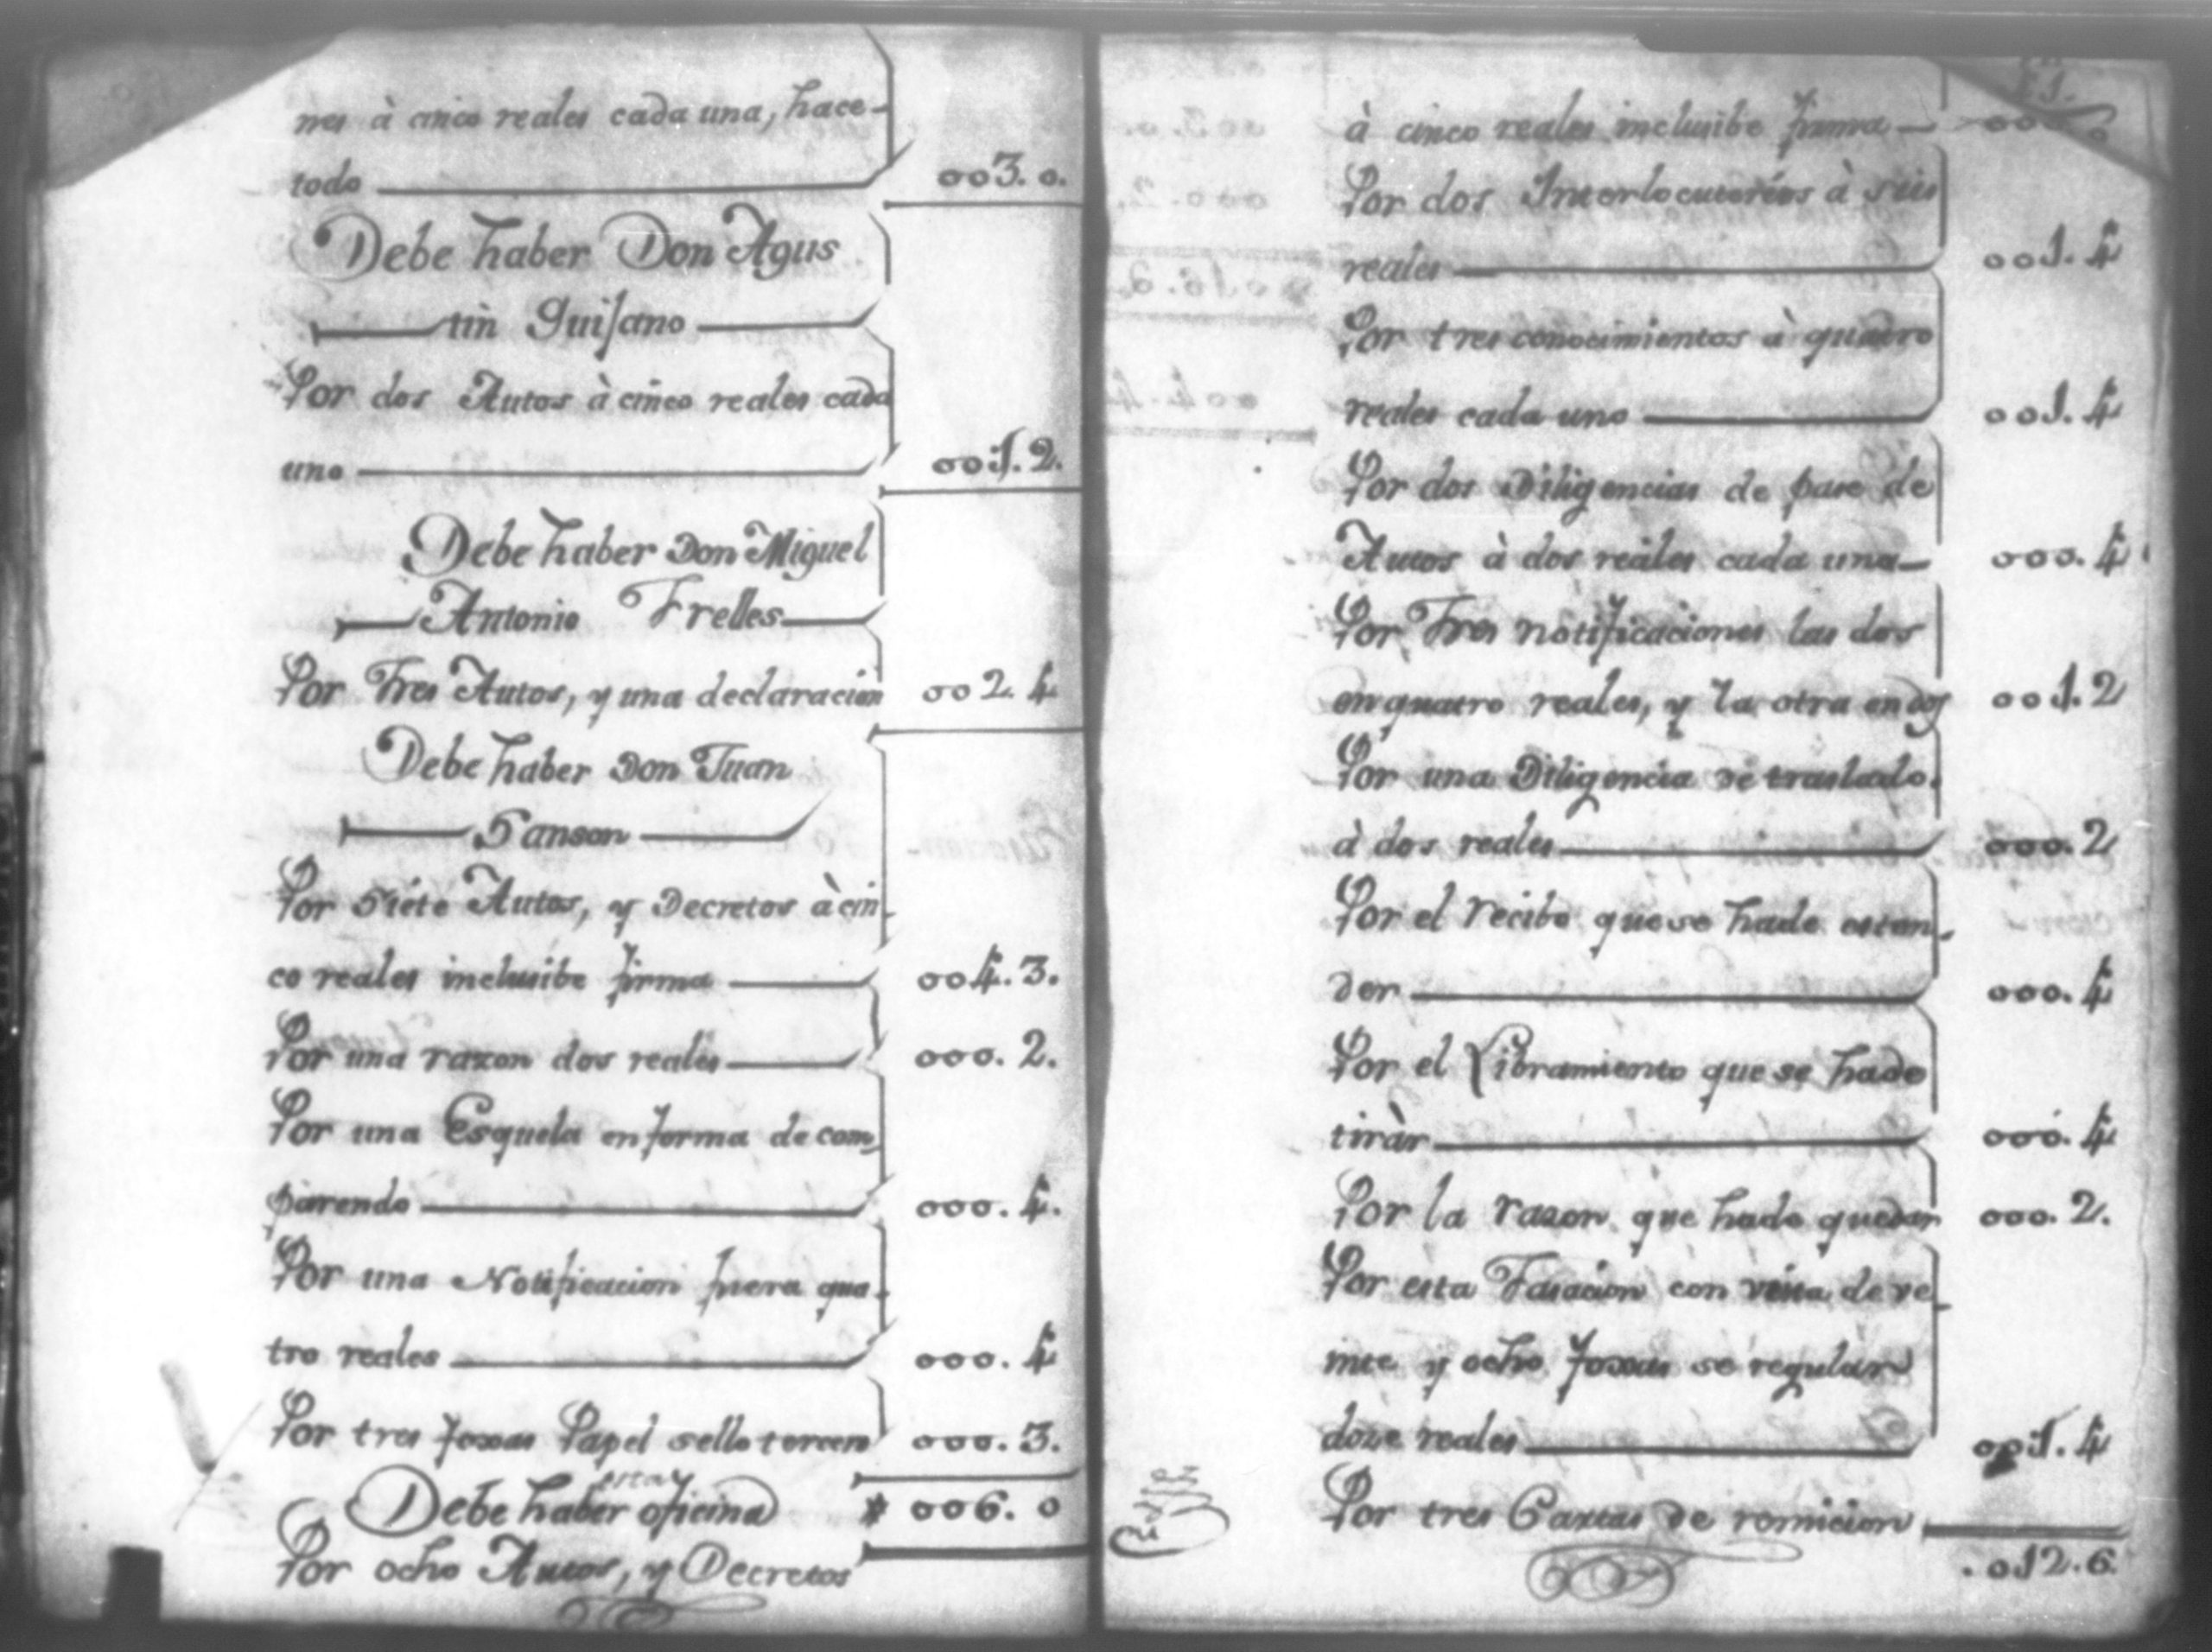 nes à cinco reales cada una, hace-
todo 003. 0.
Debe haber Don Agus
tin Guisano
Por dos Autos à cinco reales cada
uno 001. 2.
Debe haber Don Miguel
Antonio Trelles
Por Tres Autos, y una declaracion 002. 4
Debe haber Don Juan
Sanson
Por Siete Autos, y Decretos à cin-
co reales inclusibe firma 004. 3.
Por una razon dos reales 000. 2.
Por una Esquela en forma de com-
parendo 000. 4.
Por una Notificacion fuera qua-
tro reales 000. 4
Por tres foxas Papel sello tercero 000. 3.
esta
Debe haber oficina 006. 0
Por ocho Autos, y Decretos
à cinco reales inclusibe firma
Por dos Interlocutorios à seis
reales 001. 4
Por tres conocimientos à quatro
reales cada uno 001. 4
Por dos Diligencias de pase de
Autos à dos reales cada una 000. 4
Por Tres notificaciones las dos
en quatro reales, y la otra en dos 001. 2
Por una Diligencia de traslado.
à dos reales 000. 2
Por el recibo que se hade esten-
der 000. 4
Por el Libramiento que se hade
tiràr 000. 4
Por la razon que hade quedar 000. 2.
Por esta Tasacion con vista de ve-
inte y ocho foxas se regulan
doze reales 001. 4
Por tres Cartas de remicion
.012.6